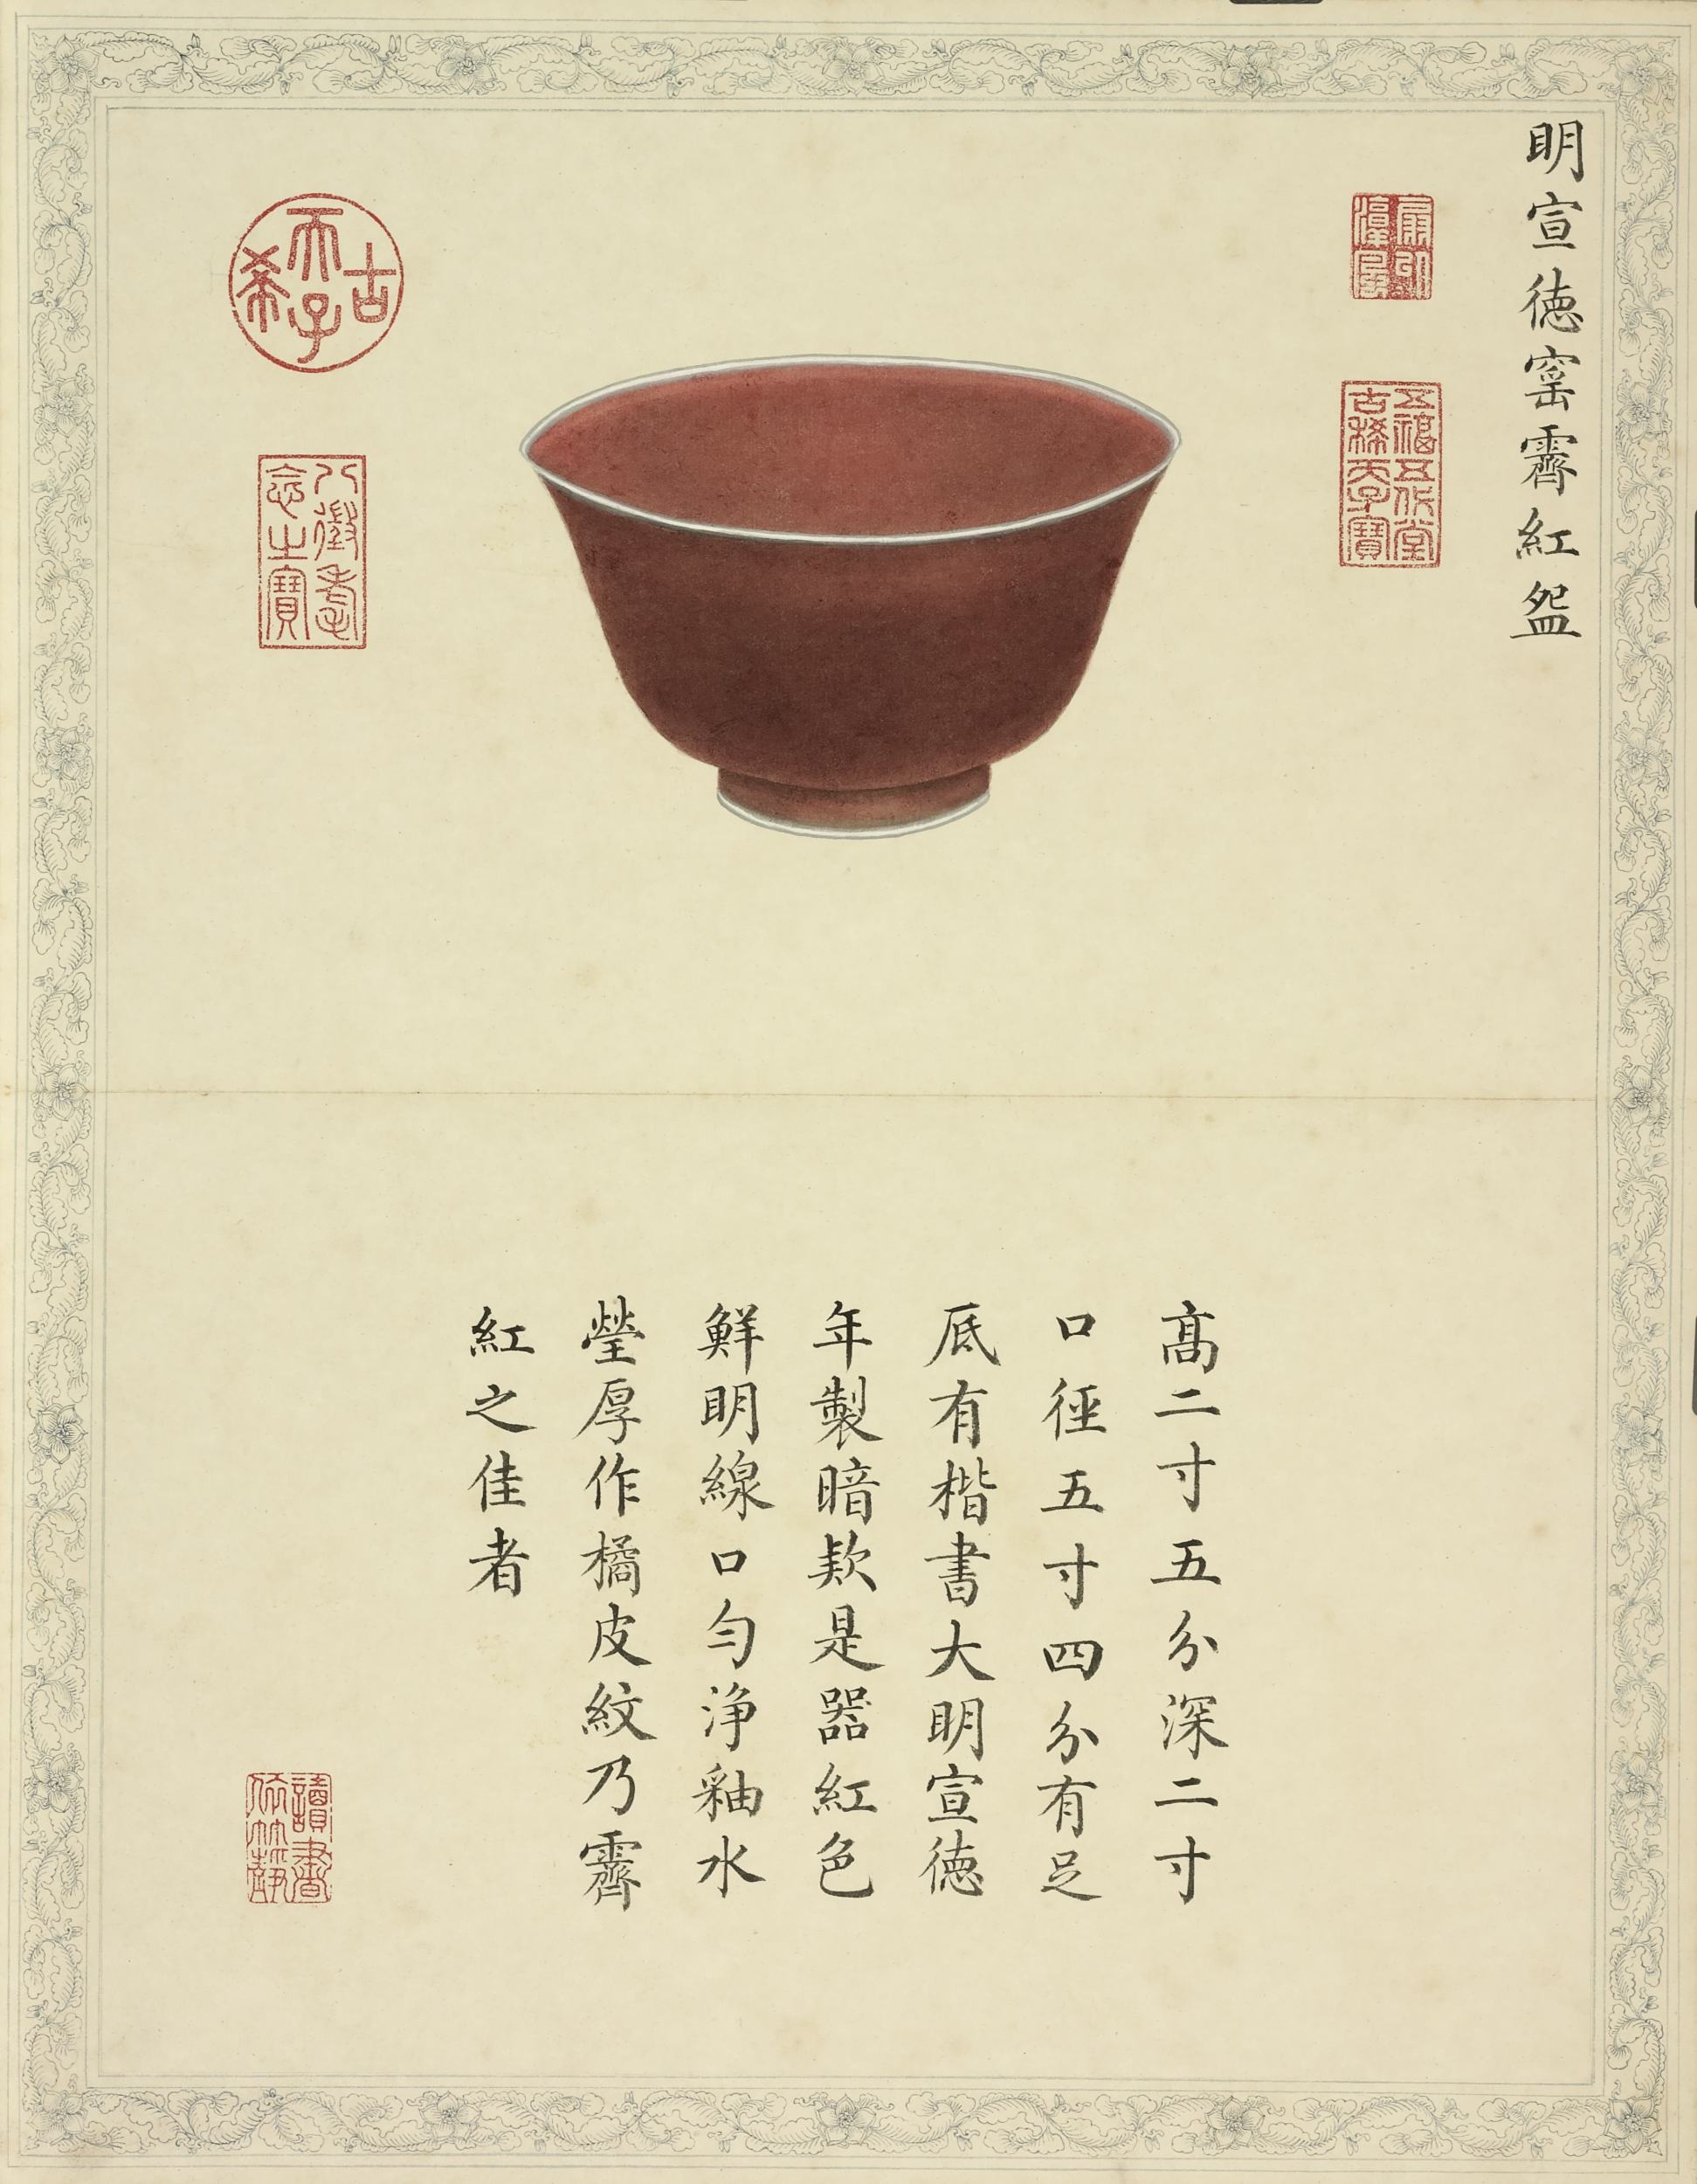 明宣徳窑霽紅盌
五福五代堂
古稀天子寶
古希天子
八徵耄
念之寶
高二寸五分深二寸
口徑五寸四分有足
底有楷書大明宣徳
年製暗款是器紅色
鮮明線口勻浄釉水
瑩厚作橘皮紋乃霽
紅之佳者
讀書